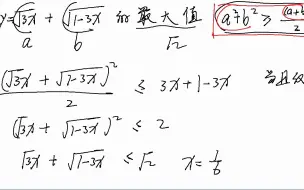 y=√3x + √1-3x 的最大值 √2
a b
a+b² ≥ (a+b
(√3x + √1-3x)² / 2 ≤ 3x+1-3x 当且仅
(√3x + √1-3x)² ≤ 2
√3x + √1-3x ≤ √2 x = 1/6